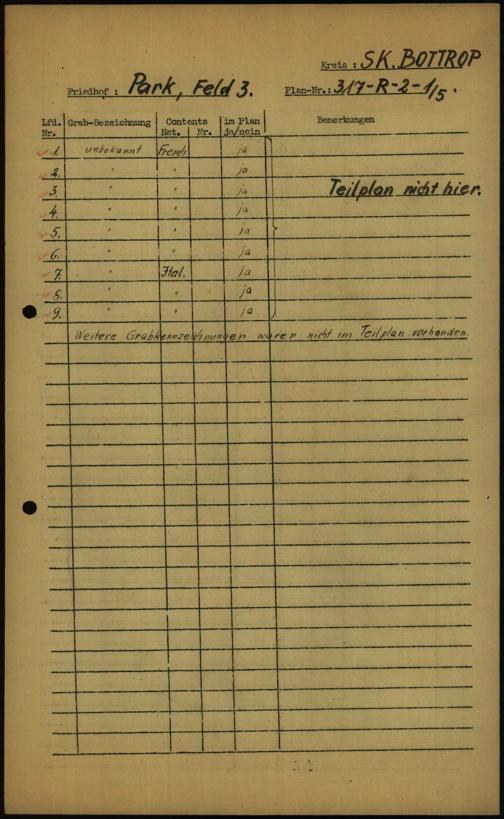 Kreis : SK. BOTTROP
Friedhof : Park, Feld 3.
Plan-Nr.: 317-R-2-1/5.
Lfd. Nr. Grab-Bezeichnung Contents Nat. Nr. im Plan ja/nein Bemerkungen
1. unbekannt French ja
2. " " ja
3. " " ja Teilplan nicht hier.
4. " " ja
5. " " ja
6. " " ja
7. " Ital. ja
8. " " ja
9. " " ja
Weitere Grabkennzeichnungen waren nicht im Teilplan vorhanden.